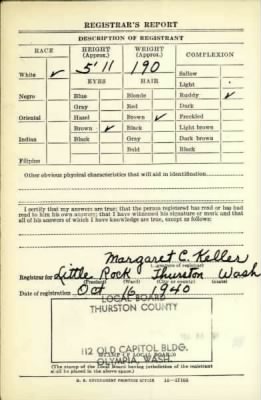 REGISTRAR'S REPORT
DESCRIPTION OF REGISTRANT
RACE HEIGHT (Approx.) WEIGHT (Approx.) COMPLEXION
White ✓ 5' 11 190 Sallow
EYES HAIR Light
Negro Blue Blonde Ruddy ✓
Gray Red Dark
Oriental Hazel Brown ✓ Freckled
Brown ✓ Black Light brown
Indian Black Gray Dark brown
Bald Black
Filipino
Other obvious physical characteristics that will aid in identification
I certify that my answers are true; that the person registered has read or has had
read to him his own answers; that I have witnessed his signature or mark and that
all of his answers of which I have knowledge are true, except as follows:
Margaret C. Keller
(Signature of registrar)
Registrar for Little Rock Thurston Wash
(Precinct) (Ward) (City or county) (State)
Date of registration Oct 16 1940
LOCAL BOARD
THURSTON COUNTY
112 OLD CAPITOL BLDG.
(STAMP OF LOCAL BOARD)
OLYMPIA, WASH.
(The stamp of the Local Board having jurisdiction of the registrant
shall be placed in the above space)
U. S. GOVERNMENT PRINTING OFFICE 16—17105